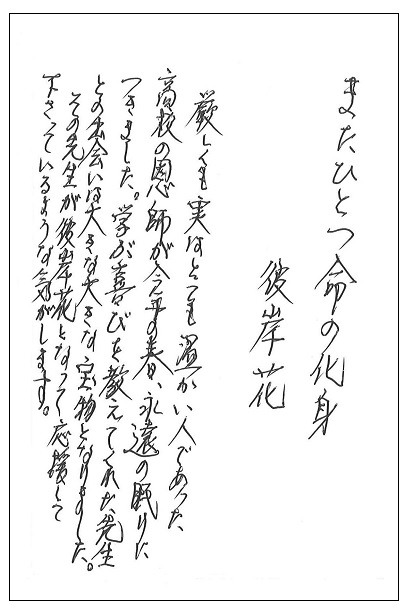 またひとつ命の化身
彼岸花
厳しくも実はとても温かい人であった
高校の恩師が今年の春、永遠の眠りに
つきました。学ぶ喜びを教えてくれた先生
との出会いは大きな大きな宝物となりました。
その先生が彼岸花となって応援して
下さっているような気がします。